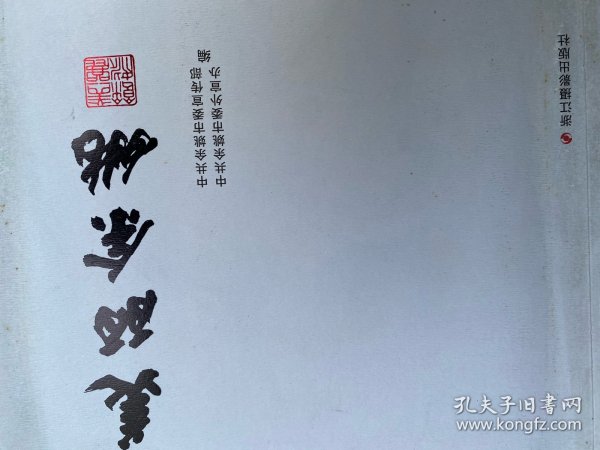 美丽余姚
中共余姚市委宣传部
中共余姚市委外宣办 编
浙江摄影出版社
孔夫子旧书网
www.kongfz.com